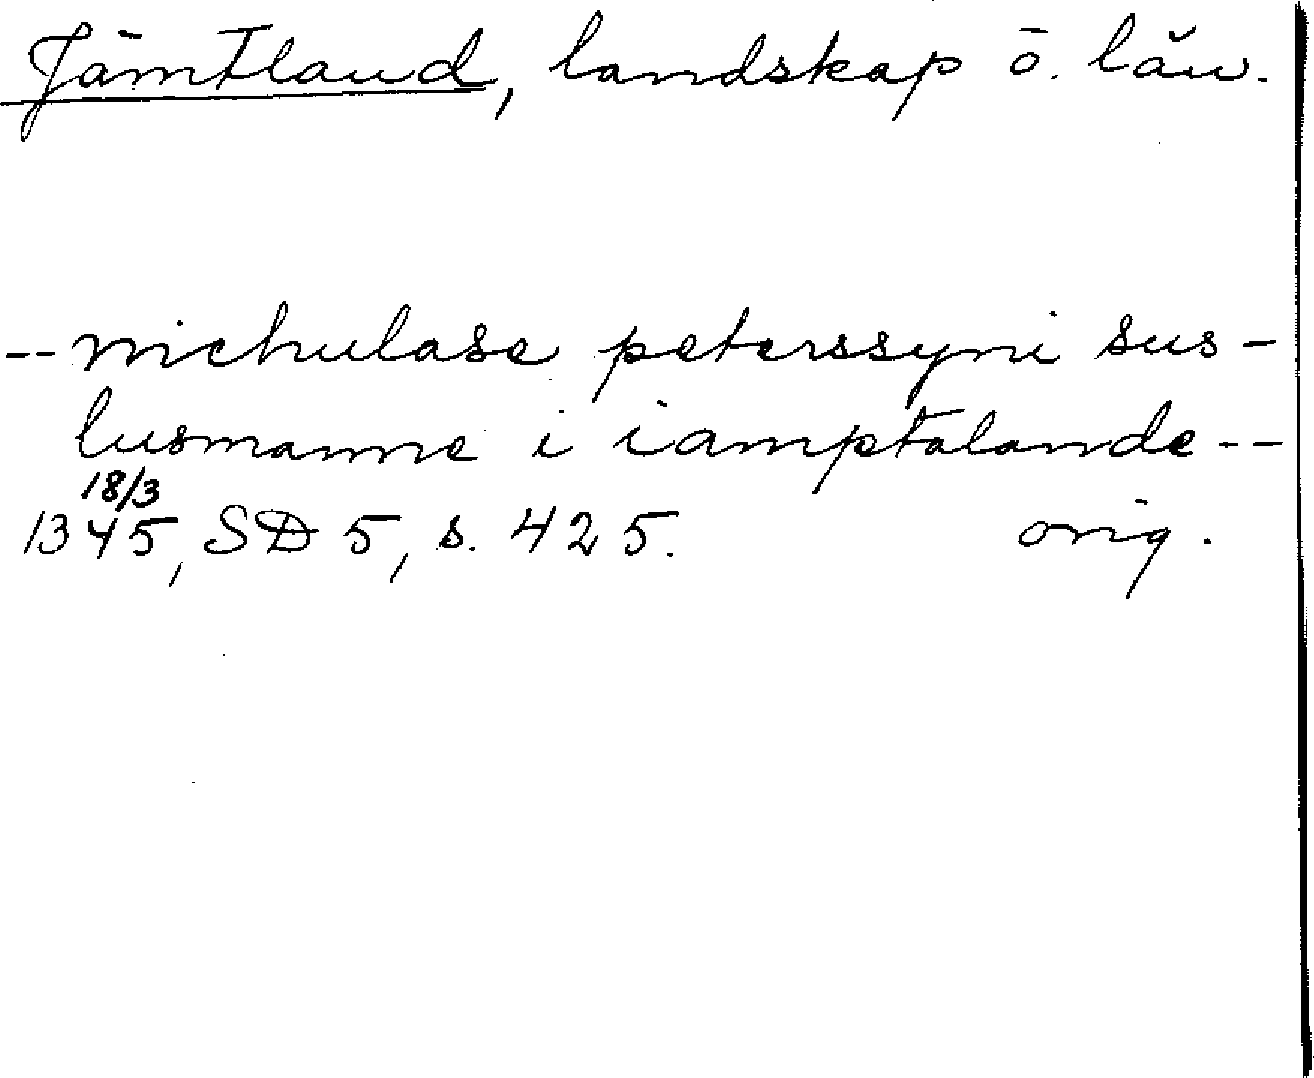 Jämtland, landskap o. län.
-- nichulase peterssyni sus-
lusmanne i iamptalande --
18/3
1345, SD 5, s. 425. orig.